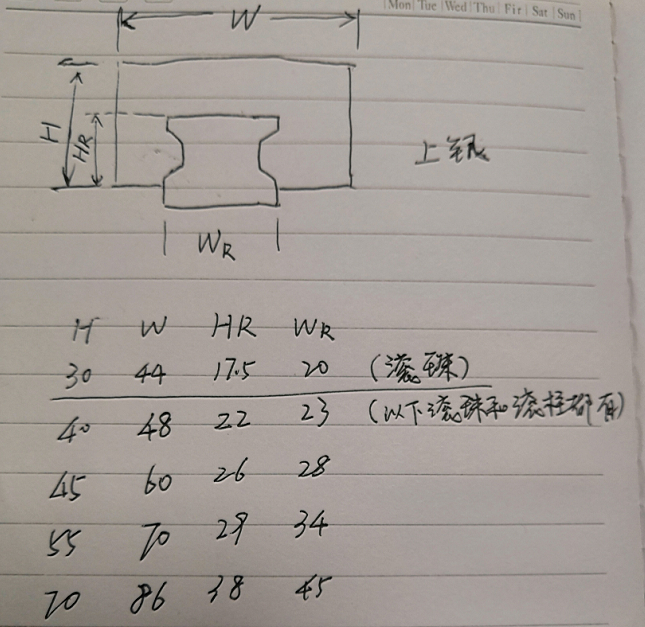 Mon Tue Wed Thu Fir Sat Sun
W
H
HR
上银
WR
H W HR WR
30 44 17.5 20 (滚珠)
40 48 22 23 (以下滚珠和滚柱都有)
45 60 26 28
55 70 29 34
70 86 38 45